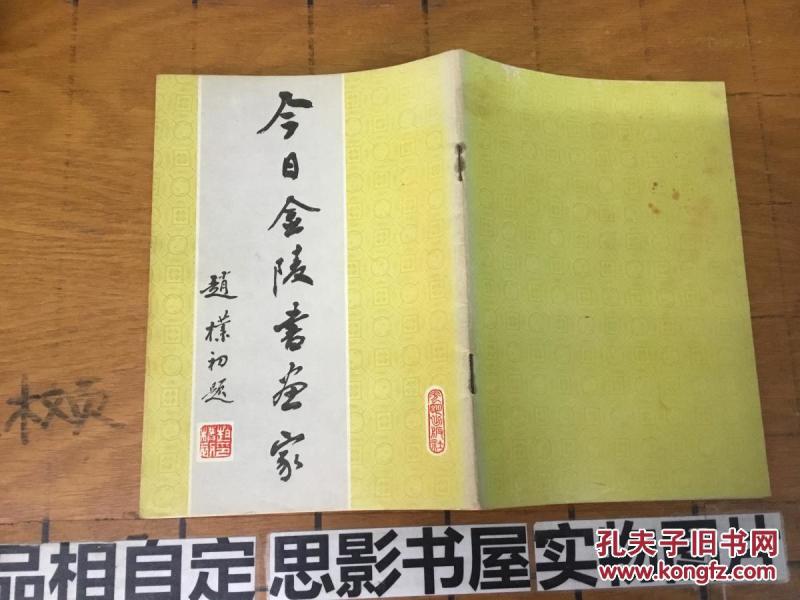 今日金陵书画家
趙樸初题
品相自定 思影书屋 实物图片
孔夫子旧书网
www.kongfz.com